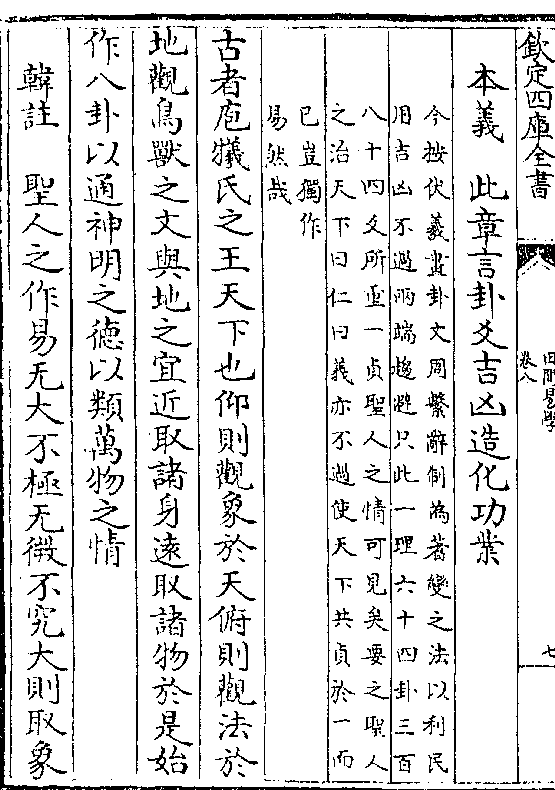 欽定四庫全書
田間易學
卷八
七
本義　此章言卦爻吉凶造化功業
今按伏羲畫卦文周繫辭制為蓍變之法以利民
用吉凶不過兩端趨避只此一理六十四卦三百
八十四爻所重一貞聖人之情可見矣要之聖人
之治天下曰仁曰義亦不過使天下共貞於一而
已豈獨作
易然哉
古者庖犧氏之王天下也仰則觀象於天俯則觀法於
地觀鳥獸之文與地之宜近取諸身遠取諸物於是始
作八卦以通神明之德以類萬物之情
韓註　聖人之作易无大不極无微不究大則取象